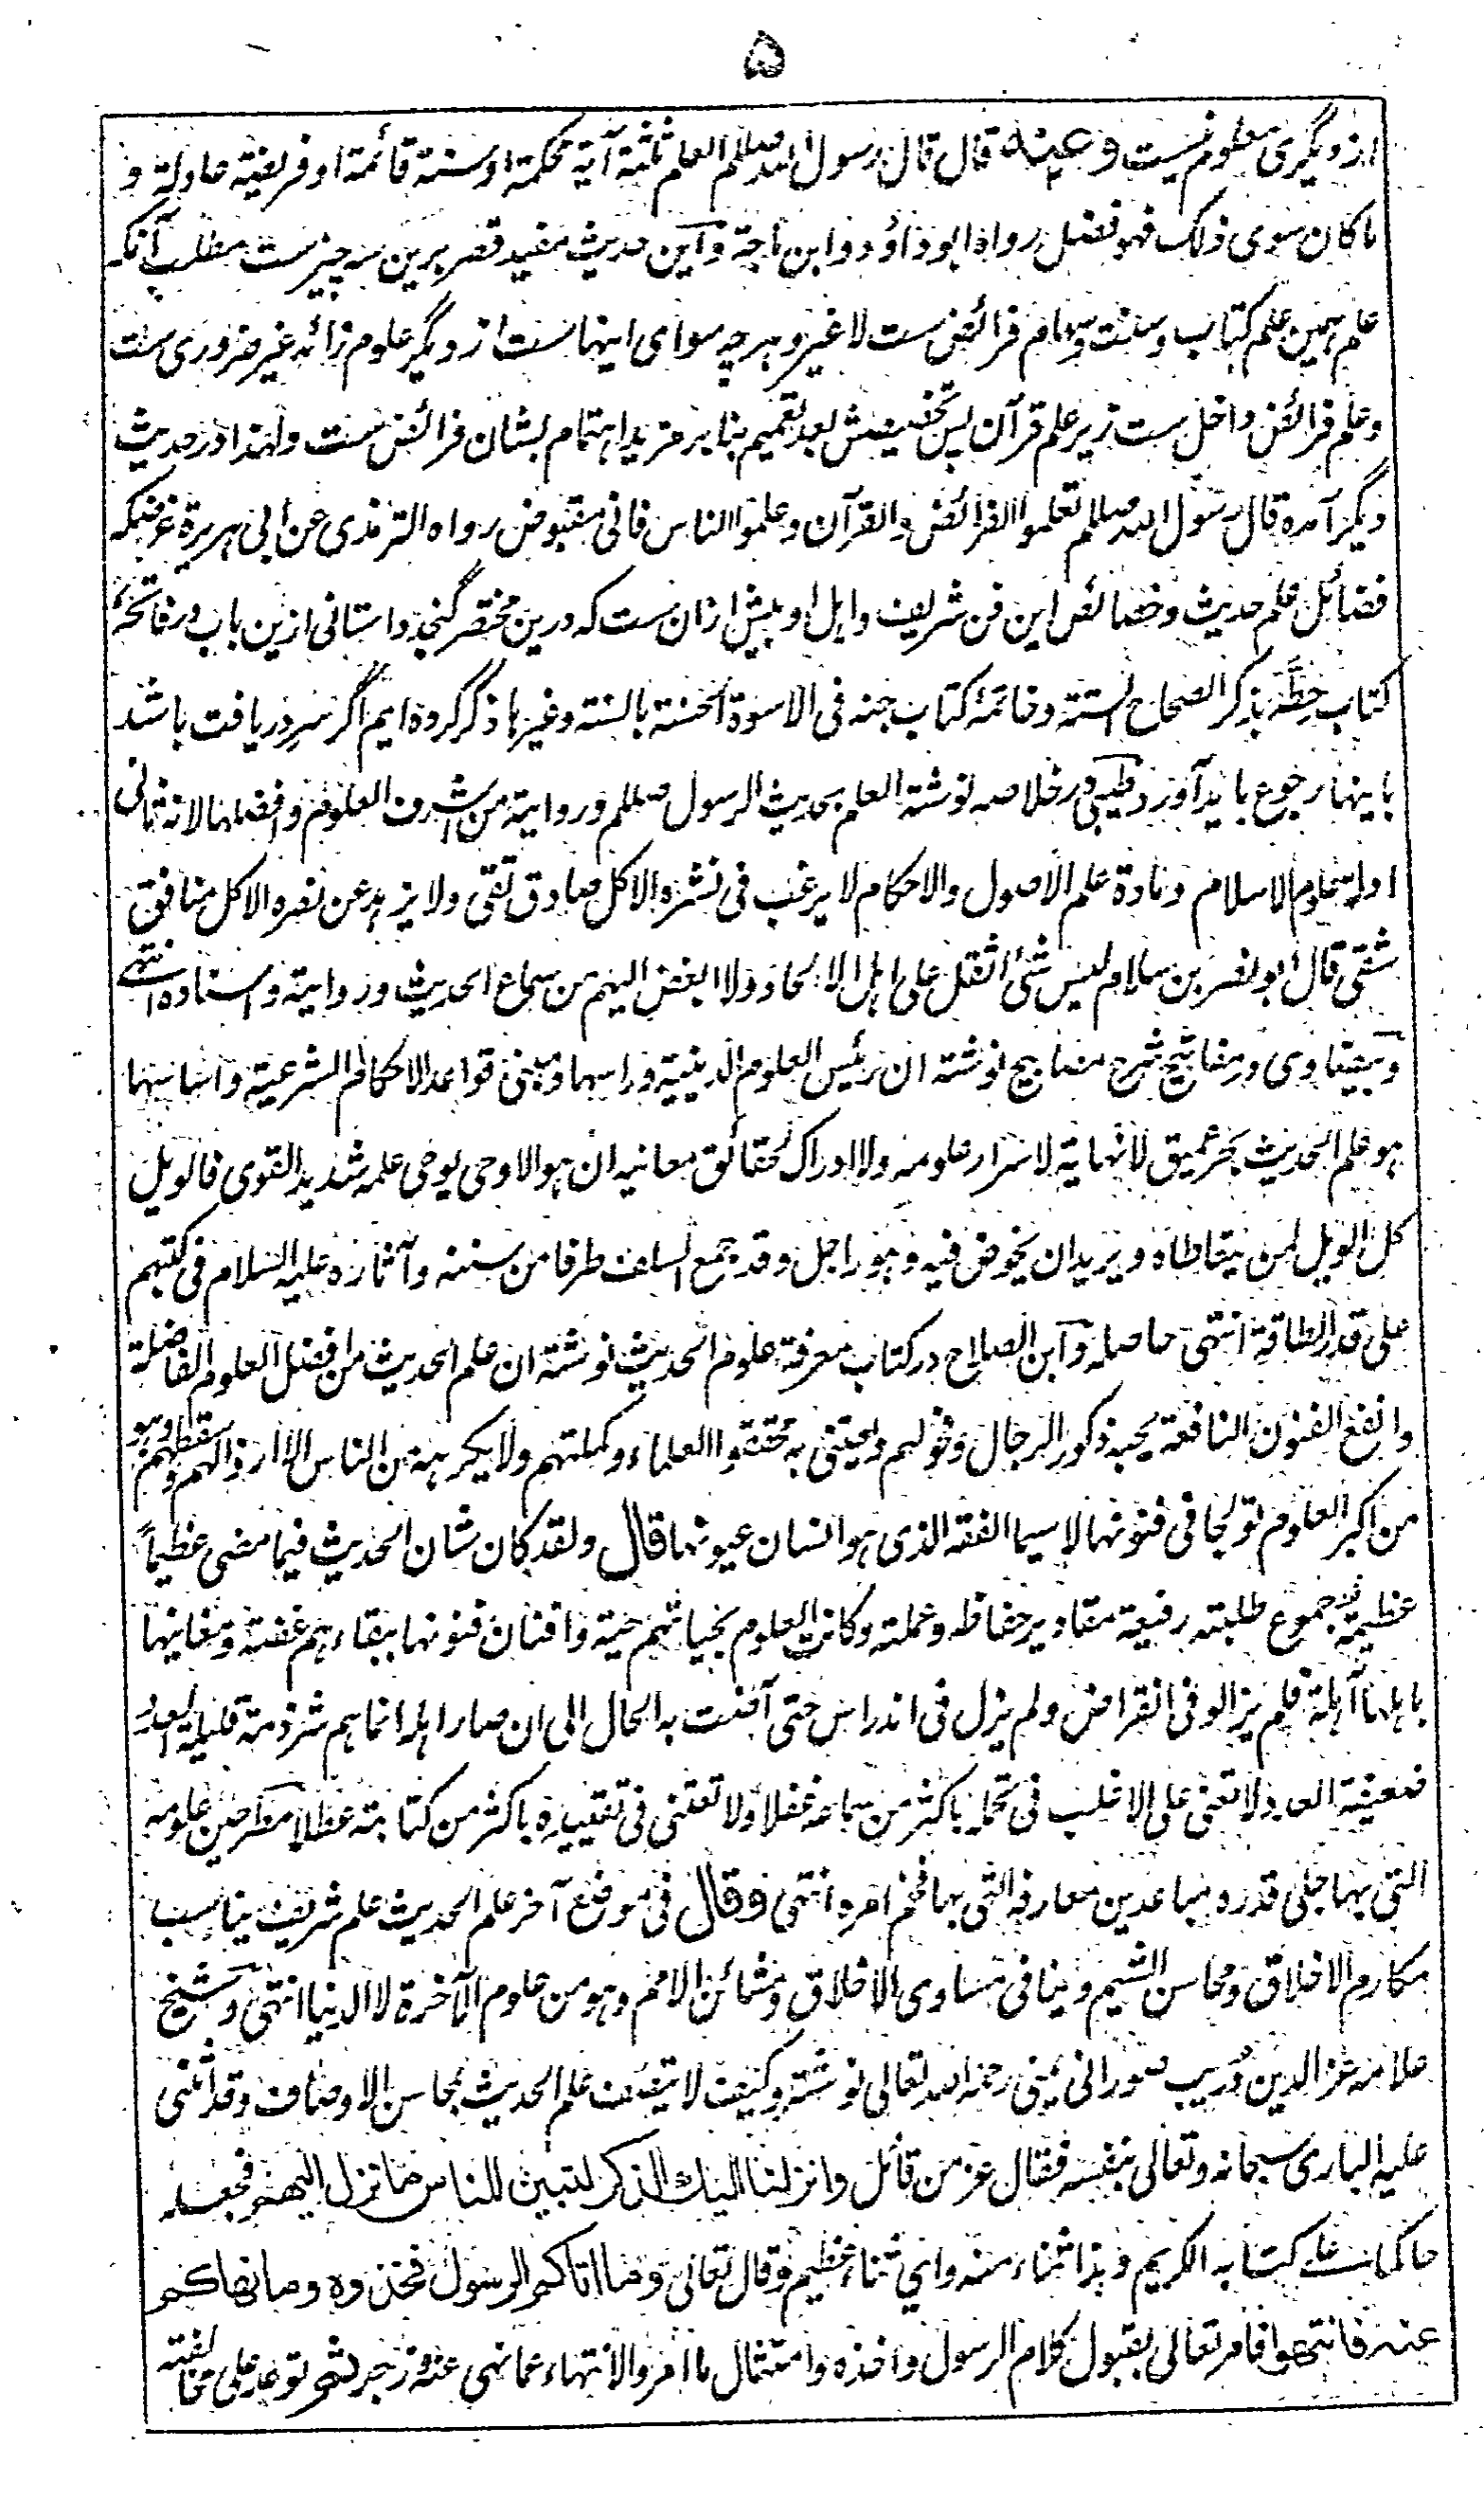 ۵
از دیگری معلوم نیست وعنہ قال قال رسول اللہ صللم العلم ثلثۃ آیۃ محکمۃ او سنۃ قائمۃ او فریضۃ عادلۃ و
ما کان سوی ذلک فہو فضل رواہ ابو داؤد وابن ماجۃ وآین حدیث مفید قصر برین سہ چیزست مطلب آنکہ
علم ہمین علم کتاب وسنت وسہام فرائض ست لاغیر وہرچہ سوای اینہاست از دیگر علوم زائد غیر ضروری ست
وعلم فرائض داخل ست زیر علم قرآن پس تخصیصش بعد تعمیم بنابر مزید اہتمام بشان فرائض ست ولہذا در حدیث
دیگر آمدہ قال رسول اللہ صللم تعلموا الفرائض والقرآن وعلموا الناس فانی مقبوض رواہ الترمذی عن ابی ہریرۃ غرضیکہ
فضائل علم حدیث وخصائص این فن شریف واہل او بیش ازان ست کہ درین مختصر گنجد داستانی ازین باب در فاتحۂ
کتاب حِطَّہ بذکر الصحاح الستہ وخاتمۂ کتاب جنہ فی الاسوۃ الحسنۃ بالسنۃ وغیرہا ذکر کردہ ایم اگر سرِ دریافت باشد
باینہا رجوع باید آورد وطیبی در خلاصہ نوشتہ العلم بحدیث الرسول صللم وروایتہ من اشرف العلوم وافضلہا لانہ ثانی
ادلۃ علوم الاسلام ومادۃ علم الاصول والاحکام لا یرغب فی نشرہ الا کل صادق تقی ولا یزہد عن نصرہ الا کل منافق
شقی قال ابو نصر بن سلام لیس شیٔ اثقل علی اہل الالحاد ولا ابغض الیہم من سماع الحدیث وروایتہ واسنادہ انتہے
وبیضاوی در مفاتیح شرح مصابیح نوشتہ ان رئیس العلوم الدینیۃ وراسہا ومبنی قواعد الاحکام الشرعیۃ واساسہا
ہو علم الحدیث بحر عمیق لا نہایۃ لاسرار علومہ ولا ادراک لحقائق معانیہ ان ہو الا وحی یوحی علمہ شدید القوی فالویل
کل الویل لمن یتعاطاہ ویرید ان یخوض فیہ وہو راجل وقد جمع السلف طرفا من سننہ وآثارہ علیہ السلام فی کتبہم
علی قدر الطاقۃ انتہی حاصلہ وآبن الصلاح در کتاب معرفۃ علوم الحدیث نوشتہ ان علم الحدیث من افضل العلوم الفاضلۃ
وانفع الفنون النافعۃ یحبہ ذکور الرجال وفحولہم ویعتنی بہ محققوا العلماء وکملتہم ولا یکرہہ من الناس الا ارذالہم وسفلتہم وہو
من اکبر العلوم تولجا فی فنونہا لا سیما الفقہ الذی ہو انسان عیونہا قال ولقد کان شان الحدیث فیما مضی عظیماً
عظیمۃ جموع طلبتہ رفیعۃ مقادیر حفاظہ وحملتہ وکانت العلوم بحیاتہم حیۃ وافنان فنونہا ببقاءہم غضۃ ومغانیہا
باہلہا آہلۃ فلم یزالوا فی انقراض ولم یزل فی اندراس حتی آضت بہ الحال الی ان صار اہلہ انما ہم شرذمۃ قلیلۃ العدد
ضعیفۃ العدد لا تعنی علی الاغلب فی تحملہ باکثر من سماعہ غفلا ولا تعتنی فی تقییدہ باکثر من کتابتہ عطلا مطرحین علومہ
التی بہا جلی قدرہ مباعدین معارفہ التی بہا فخم امرہ انتہی وقال فی موضع آخر علم الحدیث علم شریف یناسب
مکارم الاخلاق ومحاسن الشیم وینافی مساوی الاخلاق ومشائن الامم وہو من علوم الآخرۃ لا الدنیا انتہی وشیخ
علامہ عز الدین دُریب صورانی یمنی رحمہ اللہ تعالی نوشتہ وکیف لا یتصف علم الحدیث بمحاسن الاوصاف وقد اثنی
علیہ الباری سبحانہ وتعالی بنفسہ فقال عز من قائل وانزلنا الیک الذکر لتبین للناس ما نزل الیهم فجعلہ
حاکما علے کتابہ الکریم وہذا ثناء منہ وای ثناء عظیم وقال تعالی وما اتاکم الرسول فخذوہ وما نهاکم
عنہ فانتهوا فامر تعالی بقبول کلام الرسول واخذہ وامتثال ما امر والانتہاء عما نہی عنہ وزجر ثم توعد علی مخالفتہ